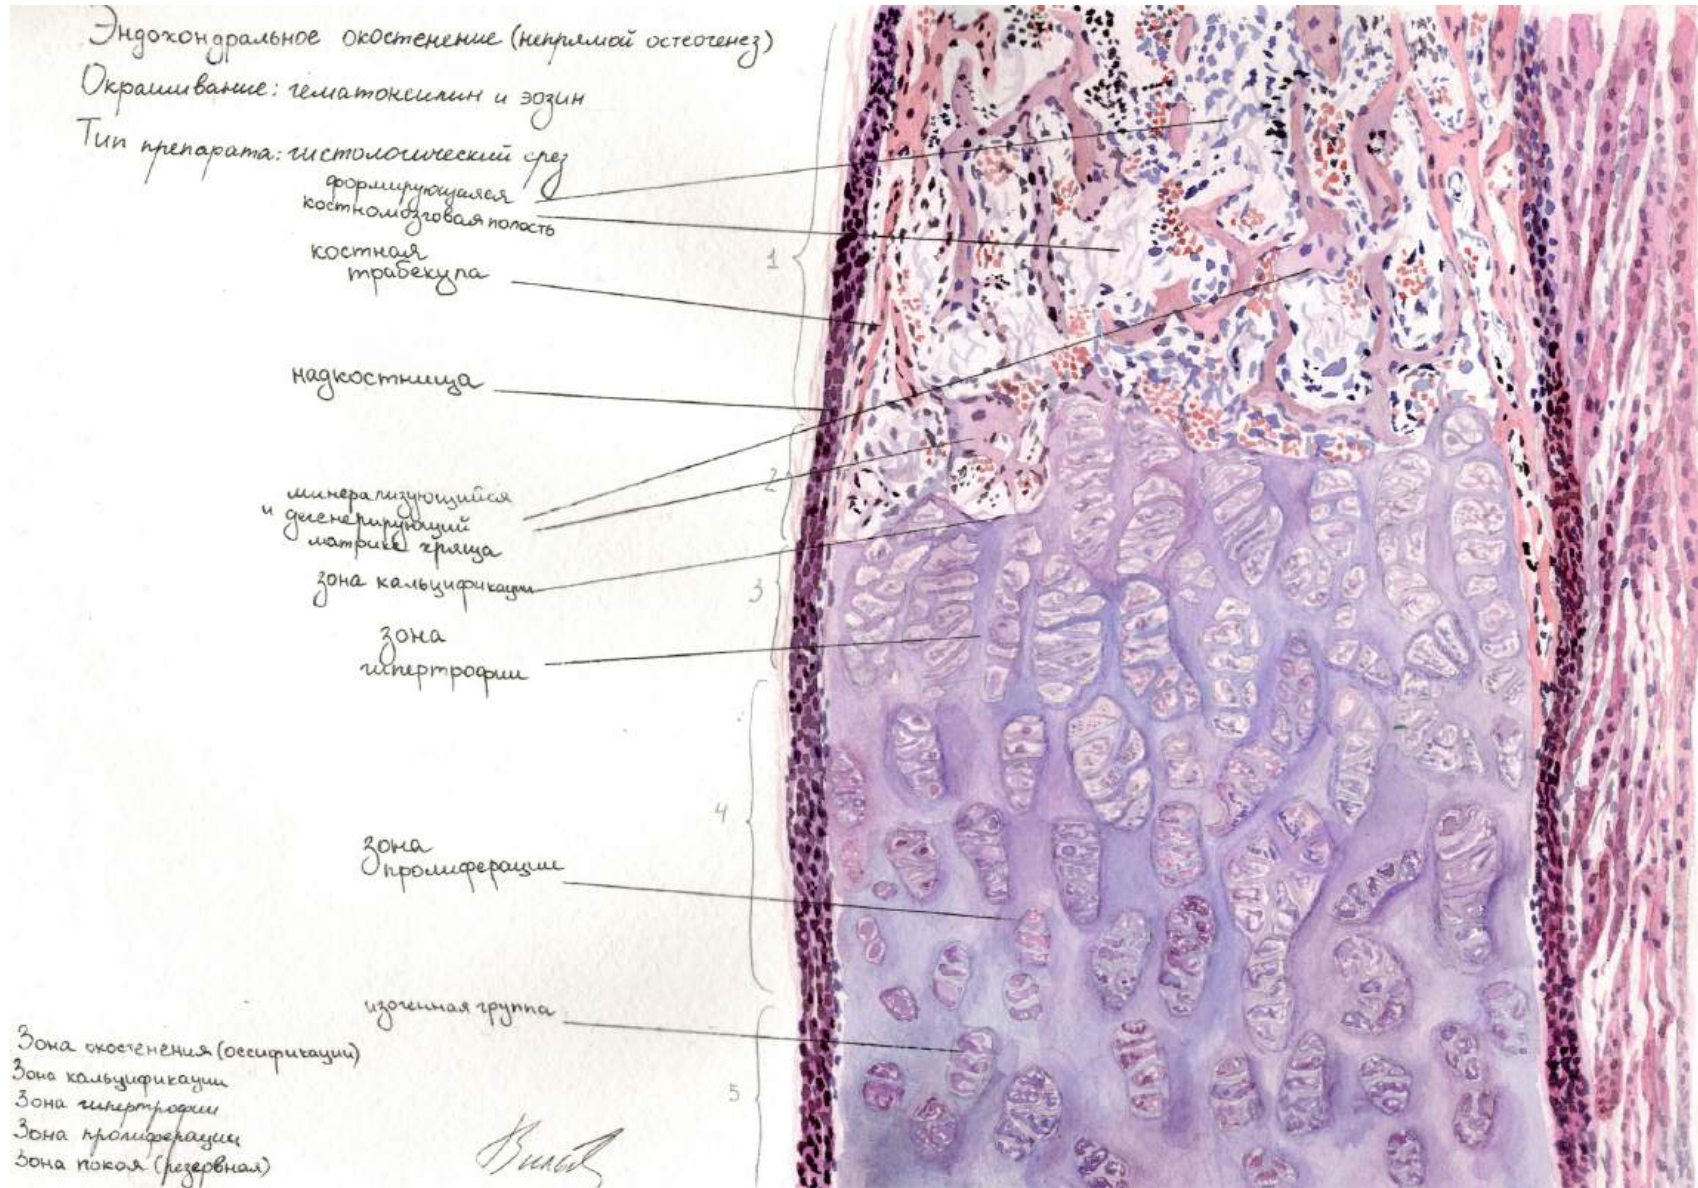 Эндохондральное окостенение (непрямой остеогенез)
Окрашивание: гематоксилин и эозин
Тип препарата: гистологический срез
формирующаяся
костномозговая полость
костная
трабекула
1
надкостница
2
минерализующийся
и дегенерирующий
матрикс хряща
зона кальцификации
3
зона
гипертрофии
4
зона
пролиферации
изогенная группа
5
Зона окостенения (оссификации)
Зона кальцификации
Зона гипертрофии
Зона пролиферации
Зона покоя (резервная)